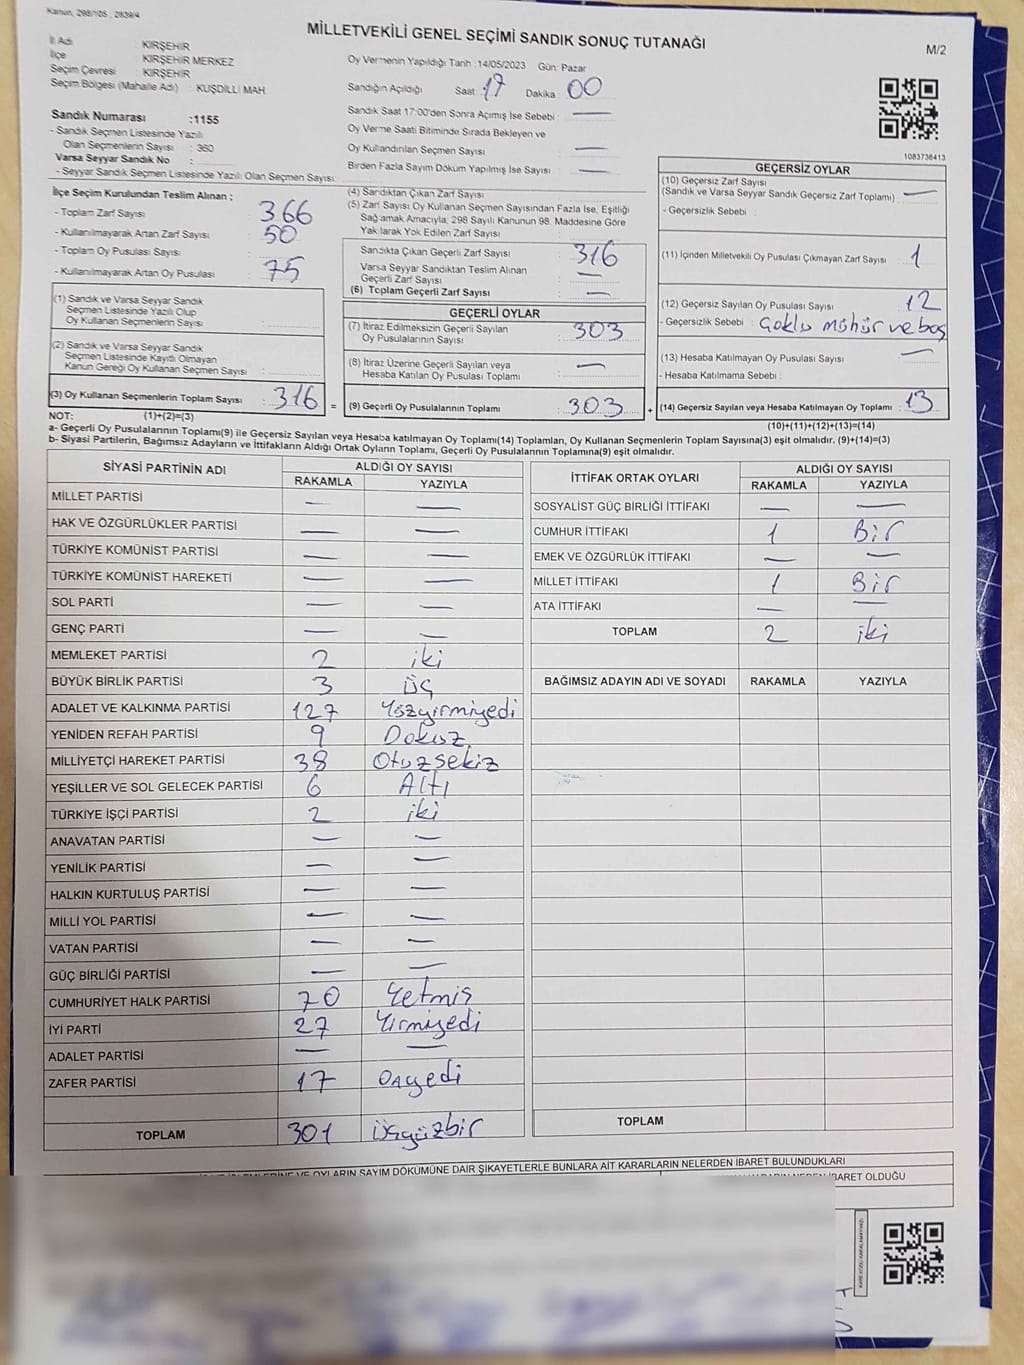 Kanun, 298/105 , 2839/4
MİLLETVEKİLİ GENEL SEÇİMİ SANDIK SONUÇ TUTANAĞI
M/2
İl Adı : KIRŞEHİR
İlçe : KIRŞEHİR MERKEZ
Seçim Çevresi : KIRŞEHİR
Seçim Bölgesi (Mahalle Adı) : KUŞDİLLİ MAH.
Oy Vermenin Yapıldığı Tarih :14/05/2023 Gün: Pazar
Sandığın Açıldığı Saat : 17 Dakika : 00
Sandık Saat 17:00'den Sonra Açımış İse Sebebi : —
Oy Verme Saati Bitiminde Sırada Bekleyen ve
Oy Kullandırılan Seçmen Sayısı : —
Birden Fazla Sayım Döküm Yapılmış İse Sayısı : —
Sandık Numarası :1155
- Sandık Seçmen Listesinde Yazılı
Olan Seçmenlerin Sayısı : 360
Varsa Seyyar Sandık No :
- Seyyar Sandık Seçmen Listesinde Yazılı Olan Seçmen Sayısı:
1083736413
İlçe Seçim Kurulundan Teslim Alınan ;
- Toplam Zarf Sayısı : 366
- Kullanılmayarak Artan Zarf Sayısı : 50
- Toplam Oy Pusulası Sayısı :
- Kullanılmayarak Artan Oy Pusulası : 75
(1) Sandık ve Varsa Seyyar Sandık
Seçmen Listesinde Yazılı Olup
Oy Kullanan Seçmenlerin Sayısı :
(2) Sandık ve Varsa Seyyar Sandık
Seçmen Listesinde Kayıtlı Olmayan
Kanun Gereği Oy Kullanan Seçmen Sayısı :
(3) Oy Kullanan Seçmenlerin Toplam Sayısı : 316 =
(4) Sandıktan Çıkan Zarf Sayısı :
(5) Zarf Sayısı Oy Kullanan Seçmen Sayısından Fazla İse, Eşitliği
Sağlamak Amacıyla; 298 Sayılı Kanunun 98. Maddesine Göre
Yakılarak Yok Edilen Zarf Sayısı :
Sandıkta Çıkan Geçerli Zarf Sayısı : 316
Varsa Seyyar Sandıktan Teslim Alınan
Geçerli Zarf Sayısı : —
(6) Toplam Geçerli Zarf Sayısı : —
GEÇERLİ OYLAR
(7) İtiraz Edilmeksizin Geçerli Sayılan
Oy Pusulalarının Sayısı : 303
(8) İtiraz Üzerine Geçerli Sayılan veya
Hesaba Katılan Oy Pusulası Toplamı : —
(9) Geçerli Oy Pusulalarının Toplamı : 303 +
GEÇERSİZ OYLAR
(10) Geçersiz Zarf Sayısı
(Sandık ve Varsa Seyyar Sandık Geçersiz Zarf Toplamı) : —
- Geçersizlik Sebebi :
(11) İçinden Milletvekili Oy Pusulası Çıkmayan Zarf Sayısı : 1
(12) Geçersiz Sayılan Oy Pusulası Sayısı : 12
- Geçersizlik Sebebi : Çoklu mühür ve boş
(13) Hesaba Katılmayan Oy Pusulası Sayısı : —
- Hesaba Katılmama Sebebi :
(14) Geçersiz Sayılan veya Hesaba Katılmayan Oy Toplamı : 13
NOT: (1)+(2)=(3)
(10)+(11)+(12)+(13)=(14)
a- Geçerli Oy Pusulalarının Toplamı(9) ile Geçersiz Sayılan veya Hesaba katılmayan Oy Toplamı(14) Toplamları, Oy Kullanan Seçmenlerin Toplam Sayısına(3) eşit olmalıdır. (9)+(14)=(3)
b- Siyasi Partilerin, Bağımsız Adayların ve İttifakların Aldığı Ortak Oyların Toplamı, Geçerli Oy Pusulalarının Toplamına(9) eşit olmalıdır.
SİYASİ PARTİNİN ADI ALDIĞI OY SAYISI
RAKAMLA YAZIYLA
MİLLET PARTİSİ — —
HAK VE ÖZGÜRLÜKLER PARTİSİ — —
TÜRKİYE KOMÜNİST PARTİSİ — —
TÜRKİYE KOMÜNİST HAREKETİ — —
SOL PARTİ — —
GENÇ PARTİ — —
MEMLEKET PARTİSİ 2 iki
BÜYÜK BİRLİK PARTİSİ 3 Üç
ADALET VE KALKINMA PARTİSİ 127 Yüzyirmiyedi
YENİDEN REFAH PARTİSİ 9 Dokuz
MİLLİYETÇİ HAREKET PARTİSİ 38 Otuzsekiz
YEŞİLLER VE SOL GELECEK PARTİSİ 6 Altı
TÜRKİYE İŞÇİ PARTİSİ 2 iki
ANAVATAN PARTİSİ — —
YENİLİK PARTİSİ — —
HALKIN KURTULUŞ PARTİSİ — —
MİLLİ YOL PARTİSİ — —
VATAN PARTİSİ — —
GÜÇ BİRLİĞİ PARTİSİ — —
CUMHURİYET HALK PARTİSİ 70 Yetmiş
İYİ PARTİ 27 Yirmiyedi
ADALET PARTİSİ — —
ZAFER PARTİSİ 17 Onyedi
TOPLAM 301 Üçyüzbir
İTTİFAK ORTAK OYLARI ALDIĞI OY SAYISI
RAKAMLA YAZIYLA
SOSYALİST GÜÇ BİRLİĞİ İTTİFAKI — —
CUMHUR İTTİFAKI 1 Bir
EMEK VE ÖZGÜRLÜK İTTİFAKI — —
MİLLET İTTİFAKI 1 Bir
ATA İTTİFAKI — —
TOPLAM 2 iki
BAĞIMSIZ ADAYIN ADI VE SOYADI RAKAMLA YAZIYLA
TOPLAM
OYLARIN SAYIM DÖKÜMÜNE DAİR ŞİKAYETLERLE BUNLARA AİT KARARLARIN NELERDEN İBARET BULUNDUKLARI
İBARET OLDUĞU